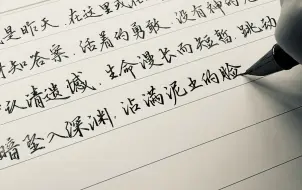 是昨天.在这里我在
知答案.活着的勇敢.没有神的光
认清遗憾.生命漫长而短暂.跳动
暗坠入深渊.沾满泥土的脸